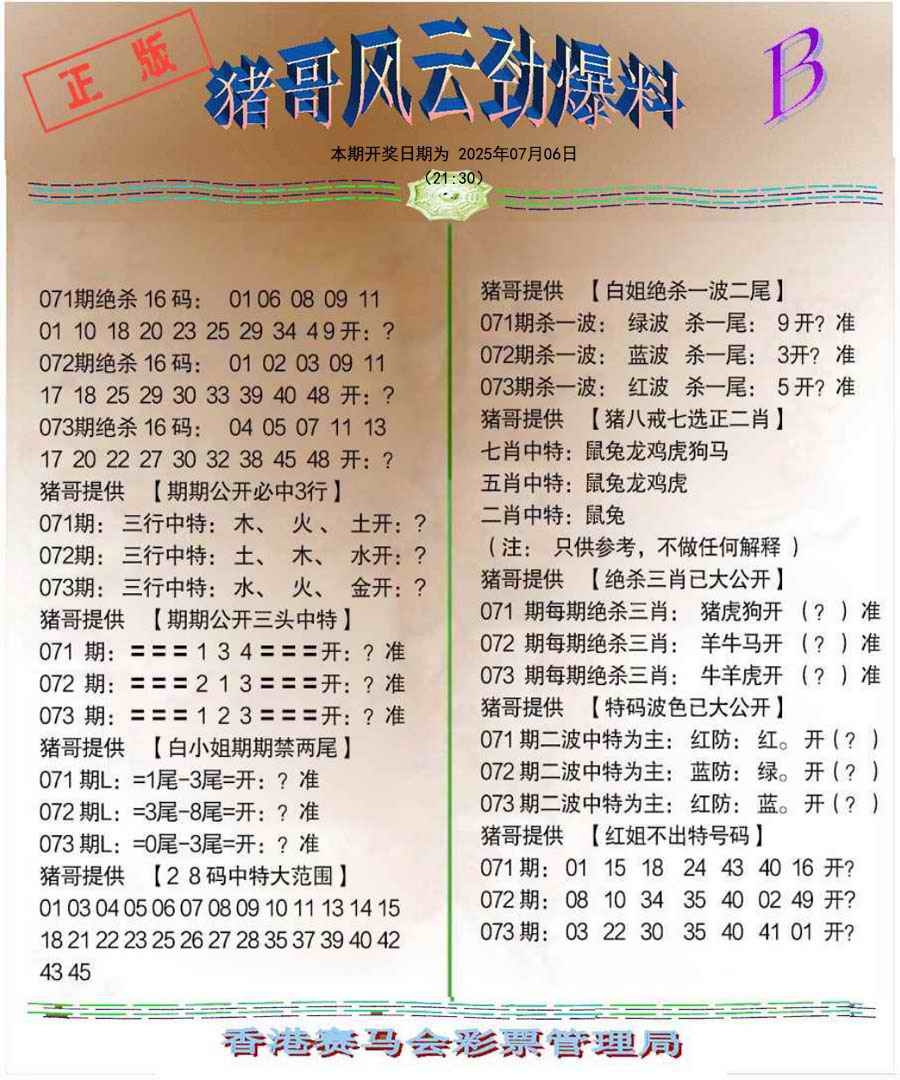 正版
猪哥风云劲爆料
B
本期开奖日期为 2025年07月06日
(21:30)
071期绝杀 16 码： 01 06 08 09 11
01 10 18 20 23 25 29 34 4 9 开：?
072期绝杀 16 码： 01 02 03 09 11
17 18 25 29 30 33 39 40 48 开：?
073期绝杀 16 码： 04 05 07 11 13
17 20 22 27 30 32 38 45 48 开：?
猪哥提供 【期期公开必中3行】
071期：三行中特：木、 火 、 土开：?
072期：三行中特：土、 木、 水开：?
073期：三行中特：水、 火、 金开：?
猪哥提供 【期期公开三头中特】
071 期：=== 1 3 4 ===开：? 准
072 期：=== 2 1 3 ===开：? 准
073 期：=== 1 2 3 ===开：? 准
猪哥提供 【白小姐期期禁两尾】
071 期L：=1尾-3尾=开：? 准
072 期L：=3尾-8尾=开：? 准
073 期L：=0尾-3尾=开：? 准
猪哥提供 【2 8 码中特大范围】
01 03 04 05 06 07 08 09 10 11 13 14 15
18 21 22 23 25 26 27 28 35 37 39 40 42
43 45
猪哥提供 【白姐绝杀一波二尾】
071期杀一波： 绿波 杀一尾： 9 开? 准
072期杀一波： 蓝波 杀一尾： 3开? 准
073期杀一波： 红波 杀一尾： 5 开? 准
猪哥提供 【猪八戒七选正二肖】
七肖中特：鼠兔龙鸡虎狗马
五肖中特：鼠兔龙鸡虎
二肖中特：鼠兔
（注： 只供参考，不做任何解释 ）
猪哥提供 【绝杀三肖已大公开】
071 期每期绝杀三肖： 猪虎狗开 （? ）准
072 期每期绝杀三肖： 羊牛马开 （? ）准
073 期每期绝杀三肖： 牛羊虎开 （? ）准
猪哥提供 【特码波色已大公开】
071 期二波中特为主：红防：红。开（? ）
072 期二波中特为主：蓝防：绿。开（? ）
073 期二波中特为主：红防：蓝。开（? ）
猪哥提供 【红姐不出特号码】
071 期： 01 15 18 24 43 40 16 开?
072 期： 08 10 34 35 40 02 49 开?
073 期： 03 22 30 35 40 41 01 开?
香港赛马会彩票管理局